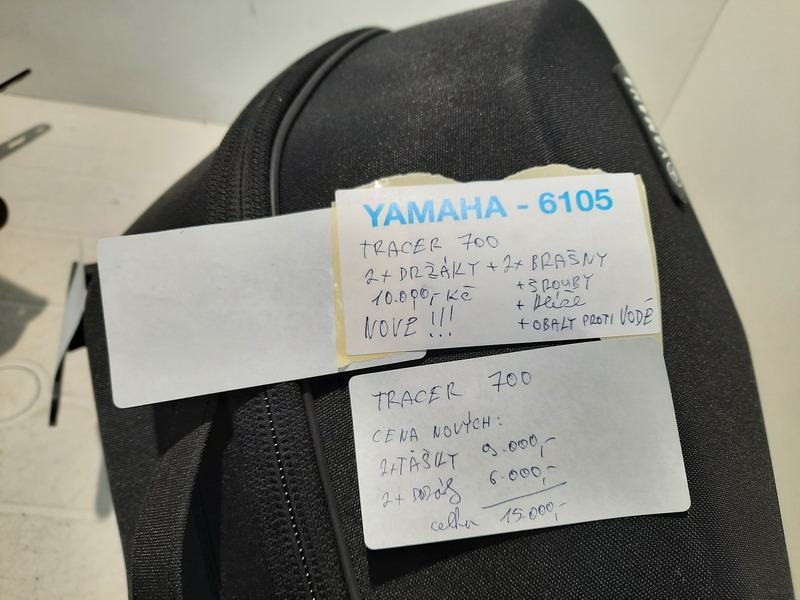 YAMAHA - 6105
TRACER 700
2x DRŽÁKY + 2x BRAŠNY
+ ŠROUBY
10.000,- Kč
+ klíče
NOVÉ !!!
+ OBALY PROTI VODĚ
TRACER 700
CENA NOVÝCH:
2x TAŠKY 9.000,-
2x DRŽÁK 6.000,-
celkem 15.000,-
YAMAHA